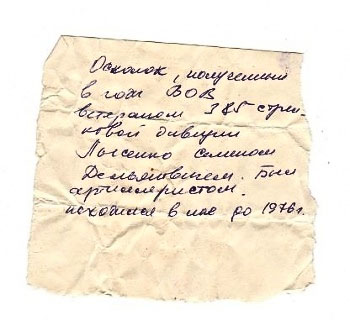 Осколок, полученный
в годы ВОВ
ветераном 385 стрел-
ковой дивизии
Лысенко Семеном
Демьяновичем. Был
артиллеристом.
находился в нем до 1976г.